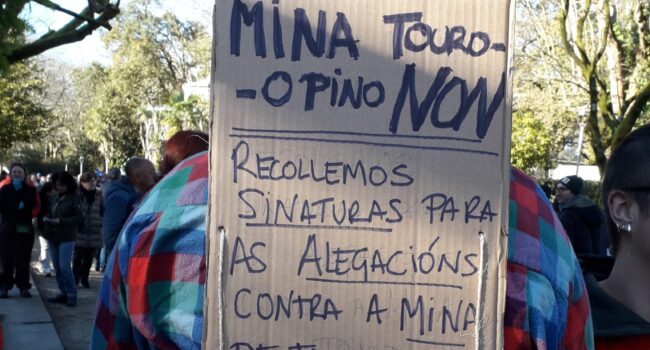 MINA TOURO-
-O PINO NON
RECOLLEMOS
SINATURAS PARA
AS ALEGACIÓNS
CONTRA A MINA
DE